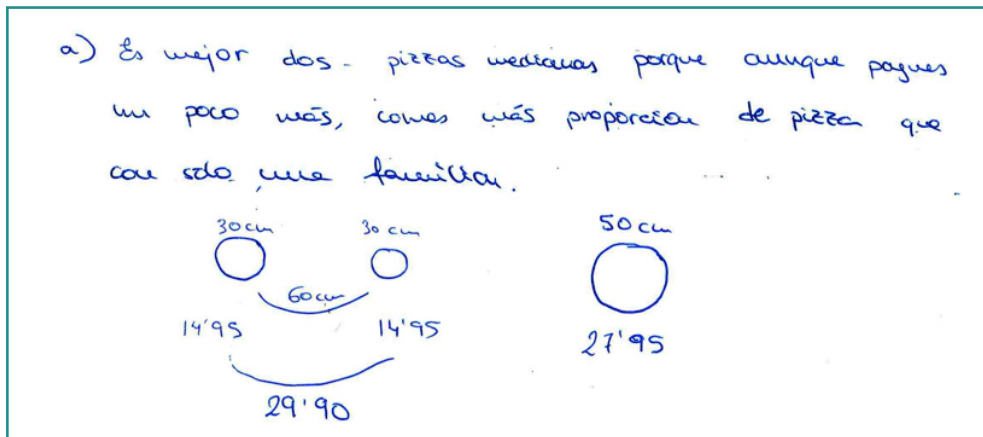 a) Es mejor dos - pizzas medianas porque aunque pagues
un poco más, comes más proporcion de pizza que
con solo una familiar.
30 cm 30 cm 50 cm
60 cm
14'95 14'95 27'95
29'90